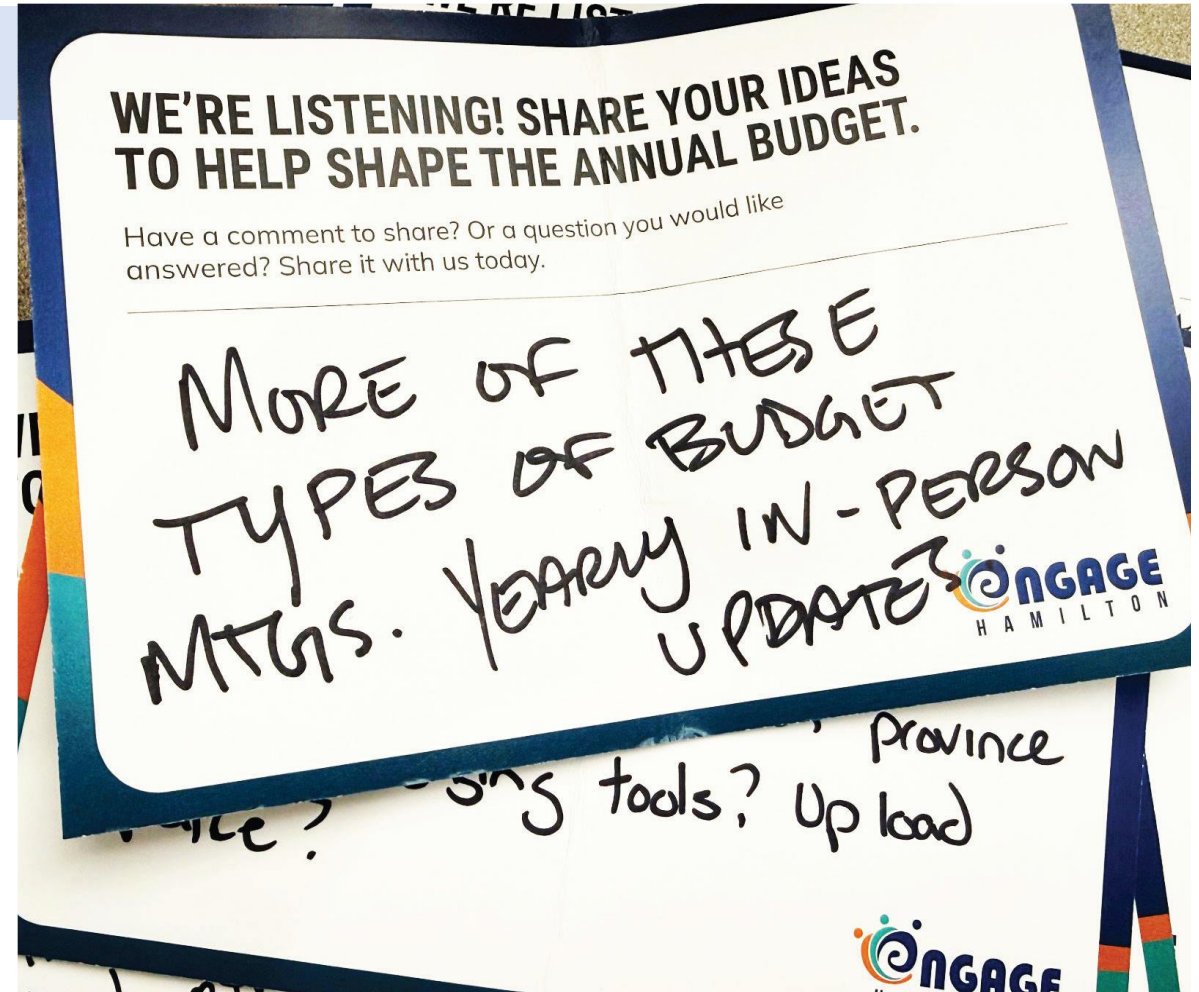 WE'RE LISTENING! SHARE YOUR IDEAS
TO HELP SHAPE THE ANNUAL BUDGET.
Have a comment to share? Or a question you would like
answered? Share it with us today.
MORE OF THESE
TYPES OF BUDGET
MTGS. YEARLY IN-PERSON
UPDATES
ENGAGE
HAMILTON
province
tools? Upload
ENGAGE